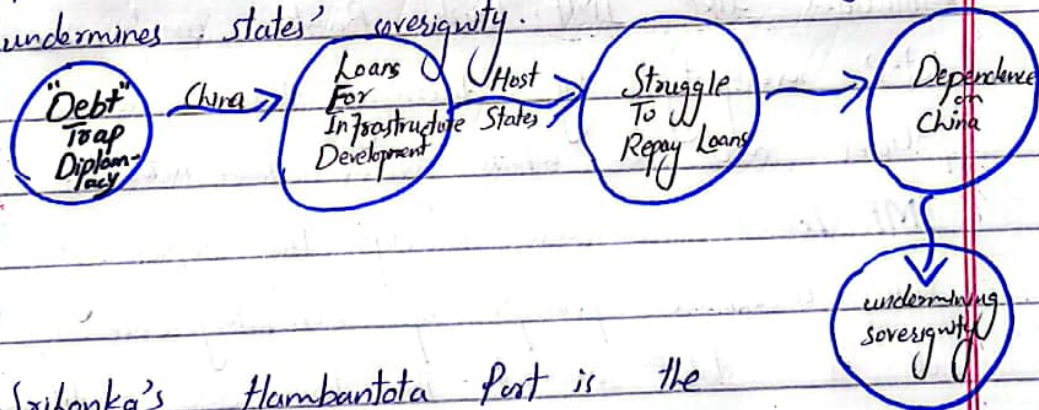 undermines states' soverignty.
"Debt"
Trap
Diplom-
acy
China
Loans
For
Infrastructure
Development
Host
States
Struggle
To
Repay Loans
Dependence
on
China
undermining
soverignty
Srilanka's Hambantota Port is the